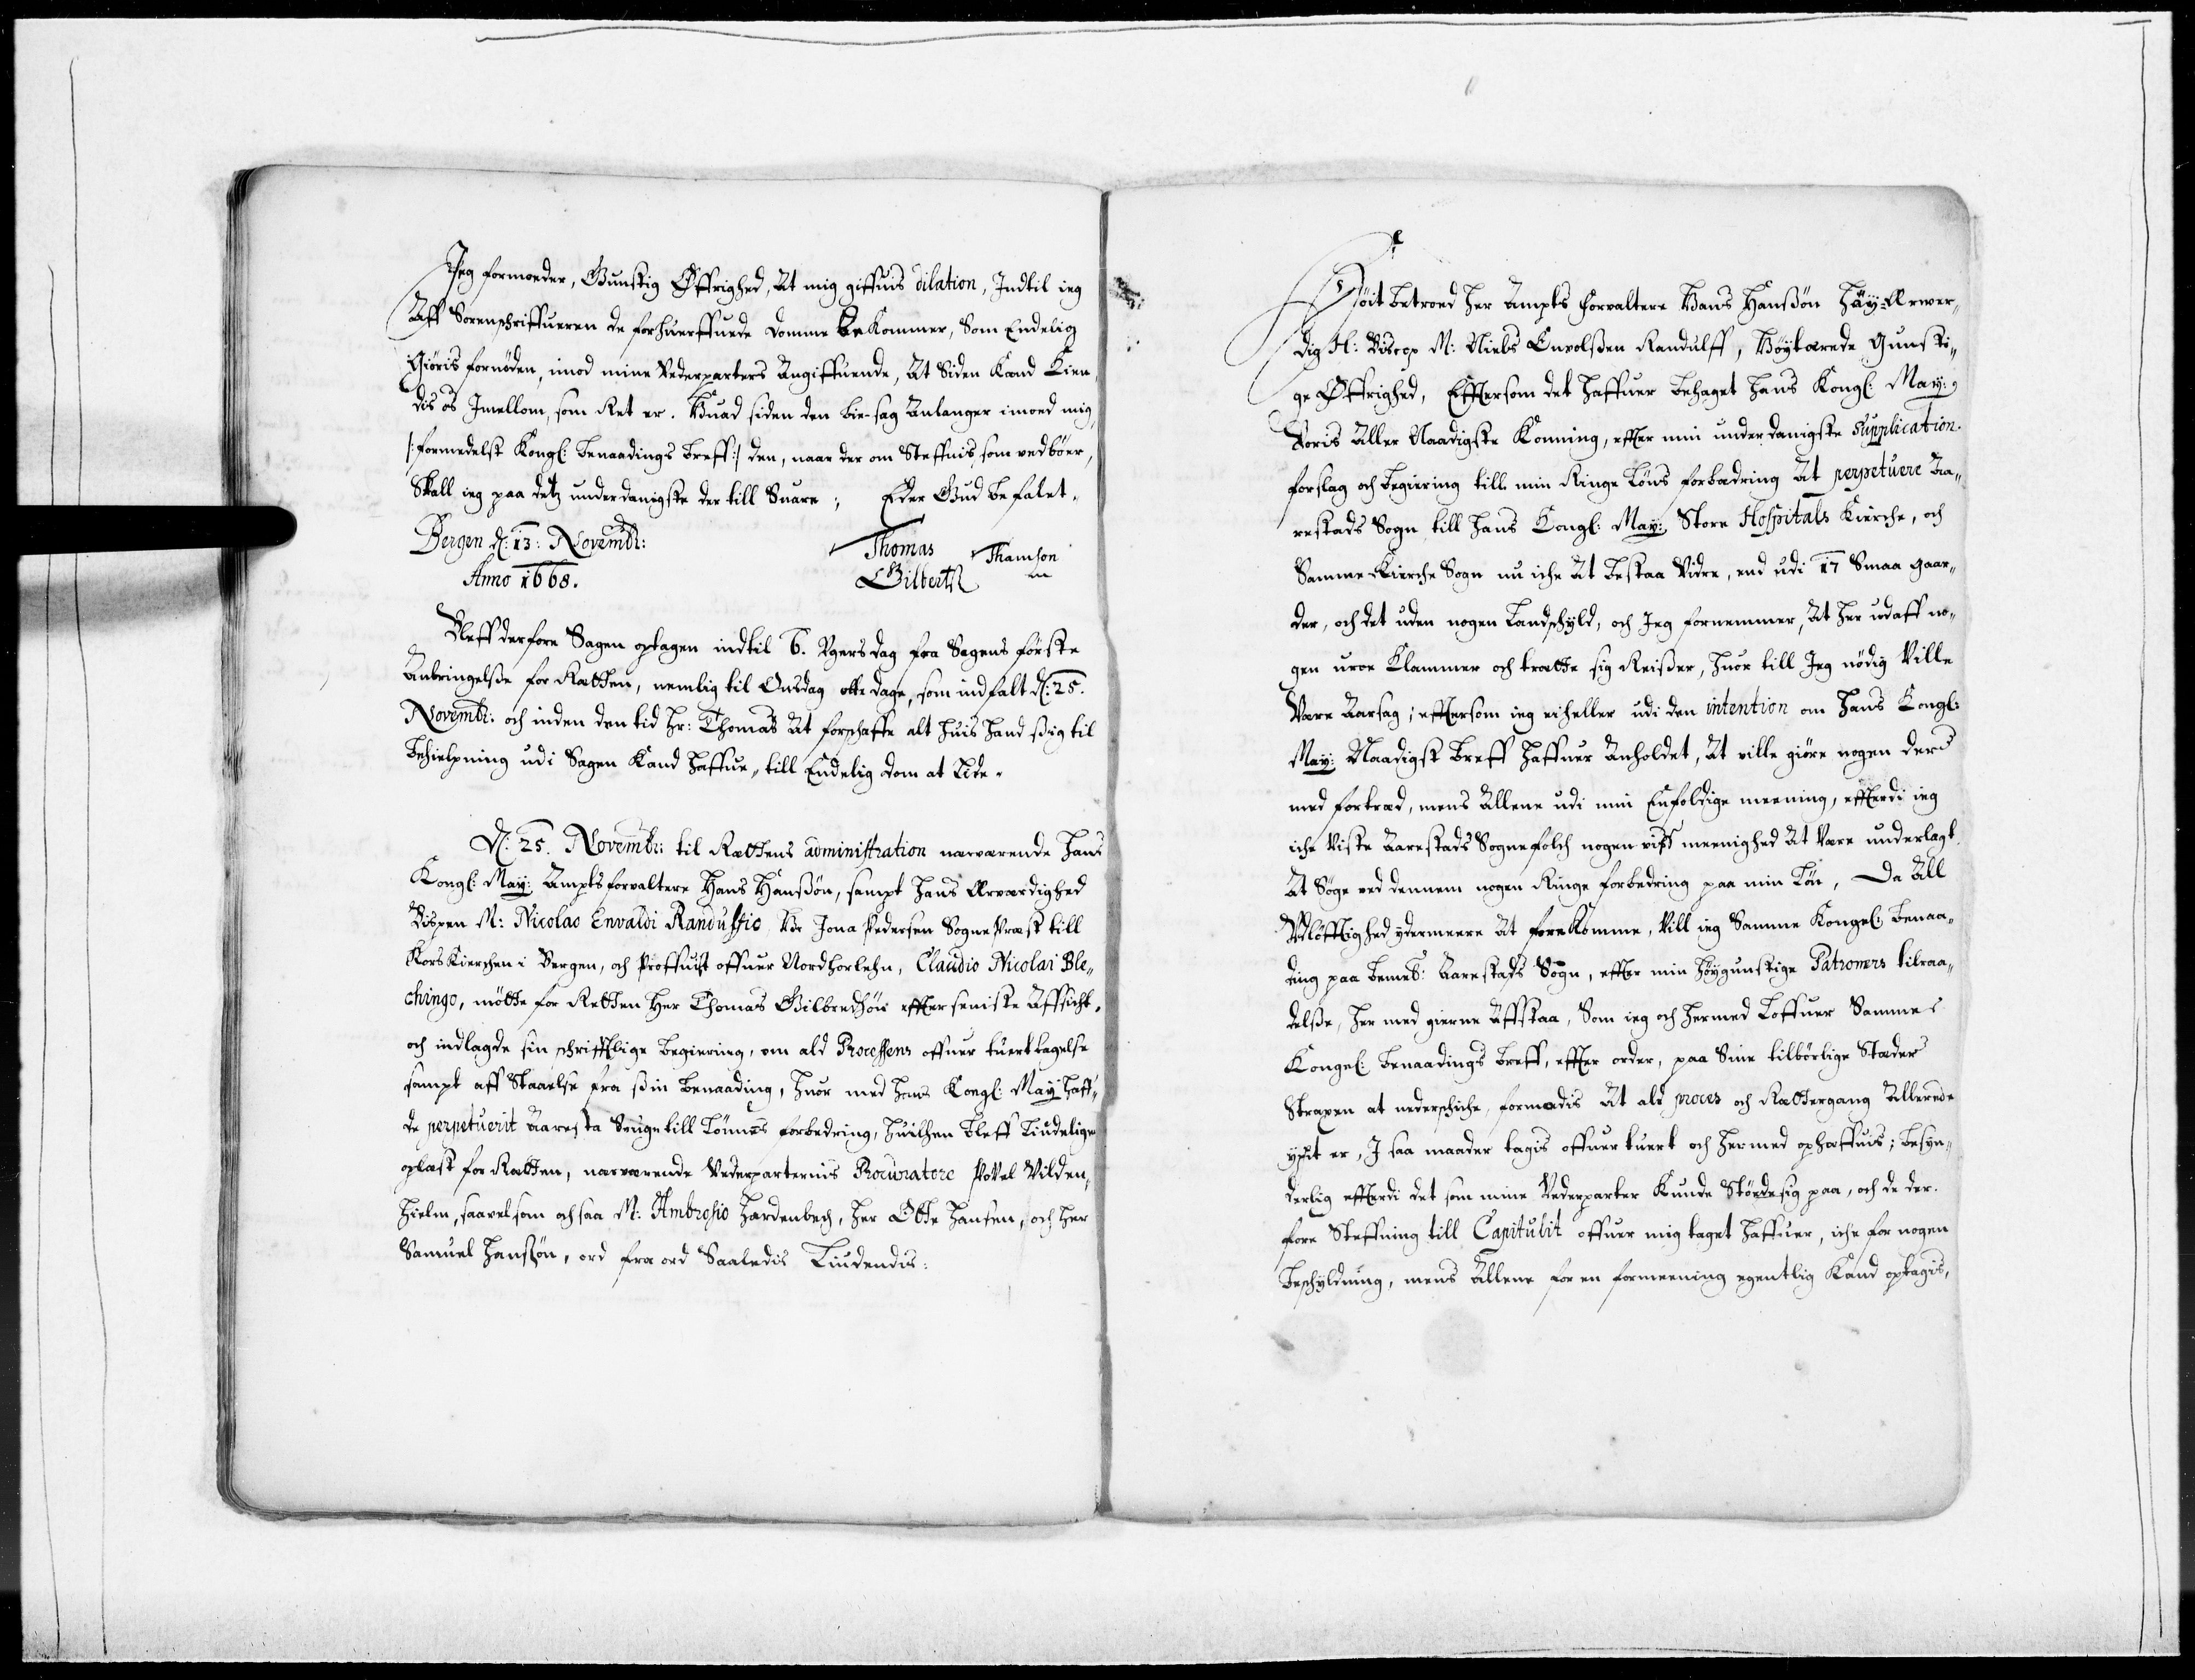 Jeg formoeder, Gunstig Øffrighed, At mig giffuis dilation, Indtil ieg
Aff Sorenschriffueren de forhuerffuede domme beKommer, Som Endelig
Giöris fornöden, imod mine Vederparters Angiffuende, At Siden Kand Kien,
dis os Imellom, som Ret er. Huad siden den bie-sag Anlanger imoed mig,
/: formedelst Kongl: benaadings breff :/ den, naar der om Steffnis som vedböer,
Skall ieg paa detz underdanigste der till Suare; Eder Gud befalet.
Bergen d: 13: Novembr:
Anno 1668.
Thomas Thamson
Gilberts
Bleff derfore Sagen optagen indtil 6. Ugers dag fra Sagens förste
Anbringelße for Rætthen, nemlig til Onsdag otte dage, som indfalt d: 25.
Novembr: och inden den tid Hr: Thomas At forschaffe alt huis hand ßig til
behielpning udi Sagen Kand haffue, till Endelig dom at Lide.
D: 25. Novembr: til Rætthens administration nærværende Hans
Kongl: May: Ampts forvaltere Hans Hanßön, sampt Hans Ærværdighed
Bispen M: Nicolao Envaldi Randulffio Hr Jona Pedersen Sogne Præst till
Kors Kierchen i Bergen, och Proffuist offuer Nordhorlehn, Claudio Nicolai Ble,,
chingo, mötte for Retthen Her Thomas Gilbredhön effter seniste Affsicht,
och indlagde sin schrifftlige begiering, om ald Processens offuer tuert tagelse
sampt aff Staaelse fra ßin benaading, huor med hans Kongl: May: haff,,
de perpetuerit Aaresta Sougn till Lönnes forbedring, huilchen bleff Liudelige
oplæst for Rætthen, nærværende Vederparternis Procuratore Povel Vilden,
hielm, saavel som ochsaa M: Ambrosio Hardenbech, Her Otte Hansen, och Her
Samuel Hanßön, ord fra ord Saaledis Liudendis:
Höit betroed Her Ampts forvaltere Hans Hanßön Höy-Ærwer,,
dig H: Biscop M: Niels Envolßen Randulff, Höytærede Gunsti,,
ge Øffrighed, Efftersom det haffuer behaget Hans Kongl: May:
Voris Aller Naadigste Konning, effter min underdanigste Supplication.
forslag och begiering till min Ringe Löns forbædring At perpetuere Aa,,
restads Sogn till Hans Kongl: May: Store Hospitals Kierche, och
Samme Kierche Sogn nu iche At bestaa Vidre, end udi 17 Smaa gaar,,
der, och det uden nogen Landschyld, och Jeg fornemmer, At her udaff no,,
gen uroe Klammer och trætthe sig Reißer, huor till Jeg nödig Ville
Være Aarsag; efftersom ieg ei heller udi den intention om Hans Kongl:
May: Naadigst breff haffuer Anholdet, At ville giöre nogen ders
med fortræd, mens Allene udi min Enfoldige meening, efftterdi ieg
iche Viste Aarestads Sognefolch nogen viss meenighed At Være underlagt
At Söge ved dennem nogen Ringe forbedring paa min Lön, Da All
Vidlöfftighed ydermeere At foreKomme, Vill ieg Samme Kongel: benaa,,
ding paa bemelt: Aarestads Sogn, effter min Höygunstige Patroners tilraa,,
delße, her med gierne Affstaa, Som ieg och hermed Loffuer Samme
Kongel: benaadings breff, effter order, paa Sine tilbörlige Stæder
Straxen at nederschiche, formodis At ald proces och Rættergang Allerede
yppit er, I saa maader tagis offuer tuert och hermed ophæffuis; besyn,,
derlig effterdi det som mine Vederparter Kunde Stödde sig paa, och de der.
fore Steffning till Capitulit offuer mig taget haffuer, iche for nogen
beschyldning, mens Allene for en formeening egentlig Kand optagis,